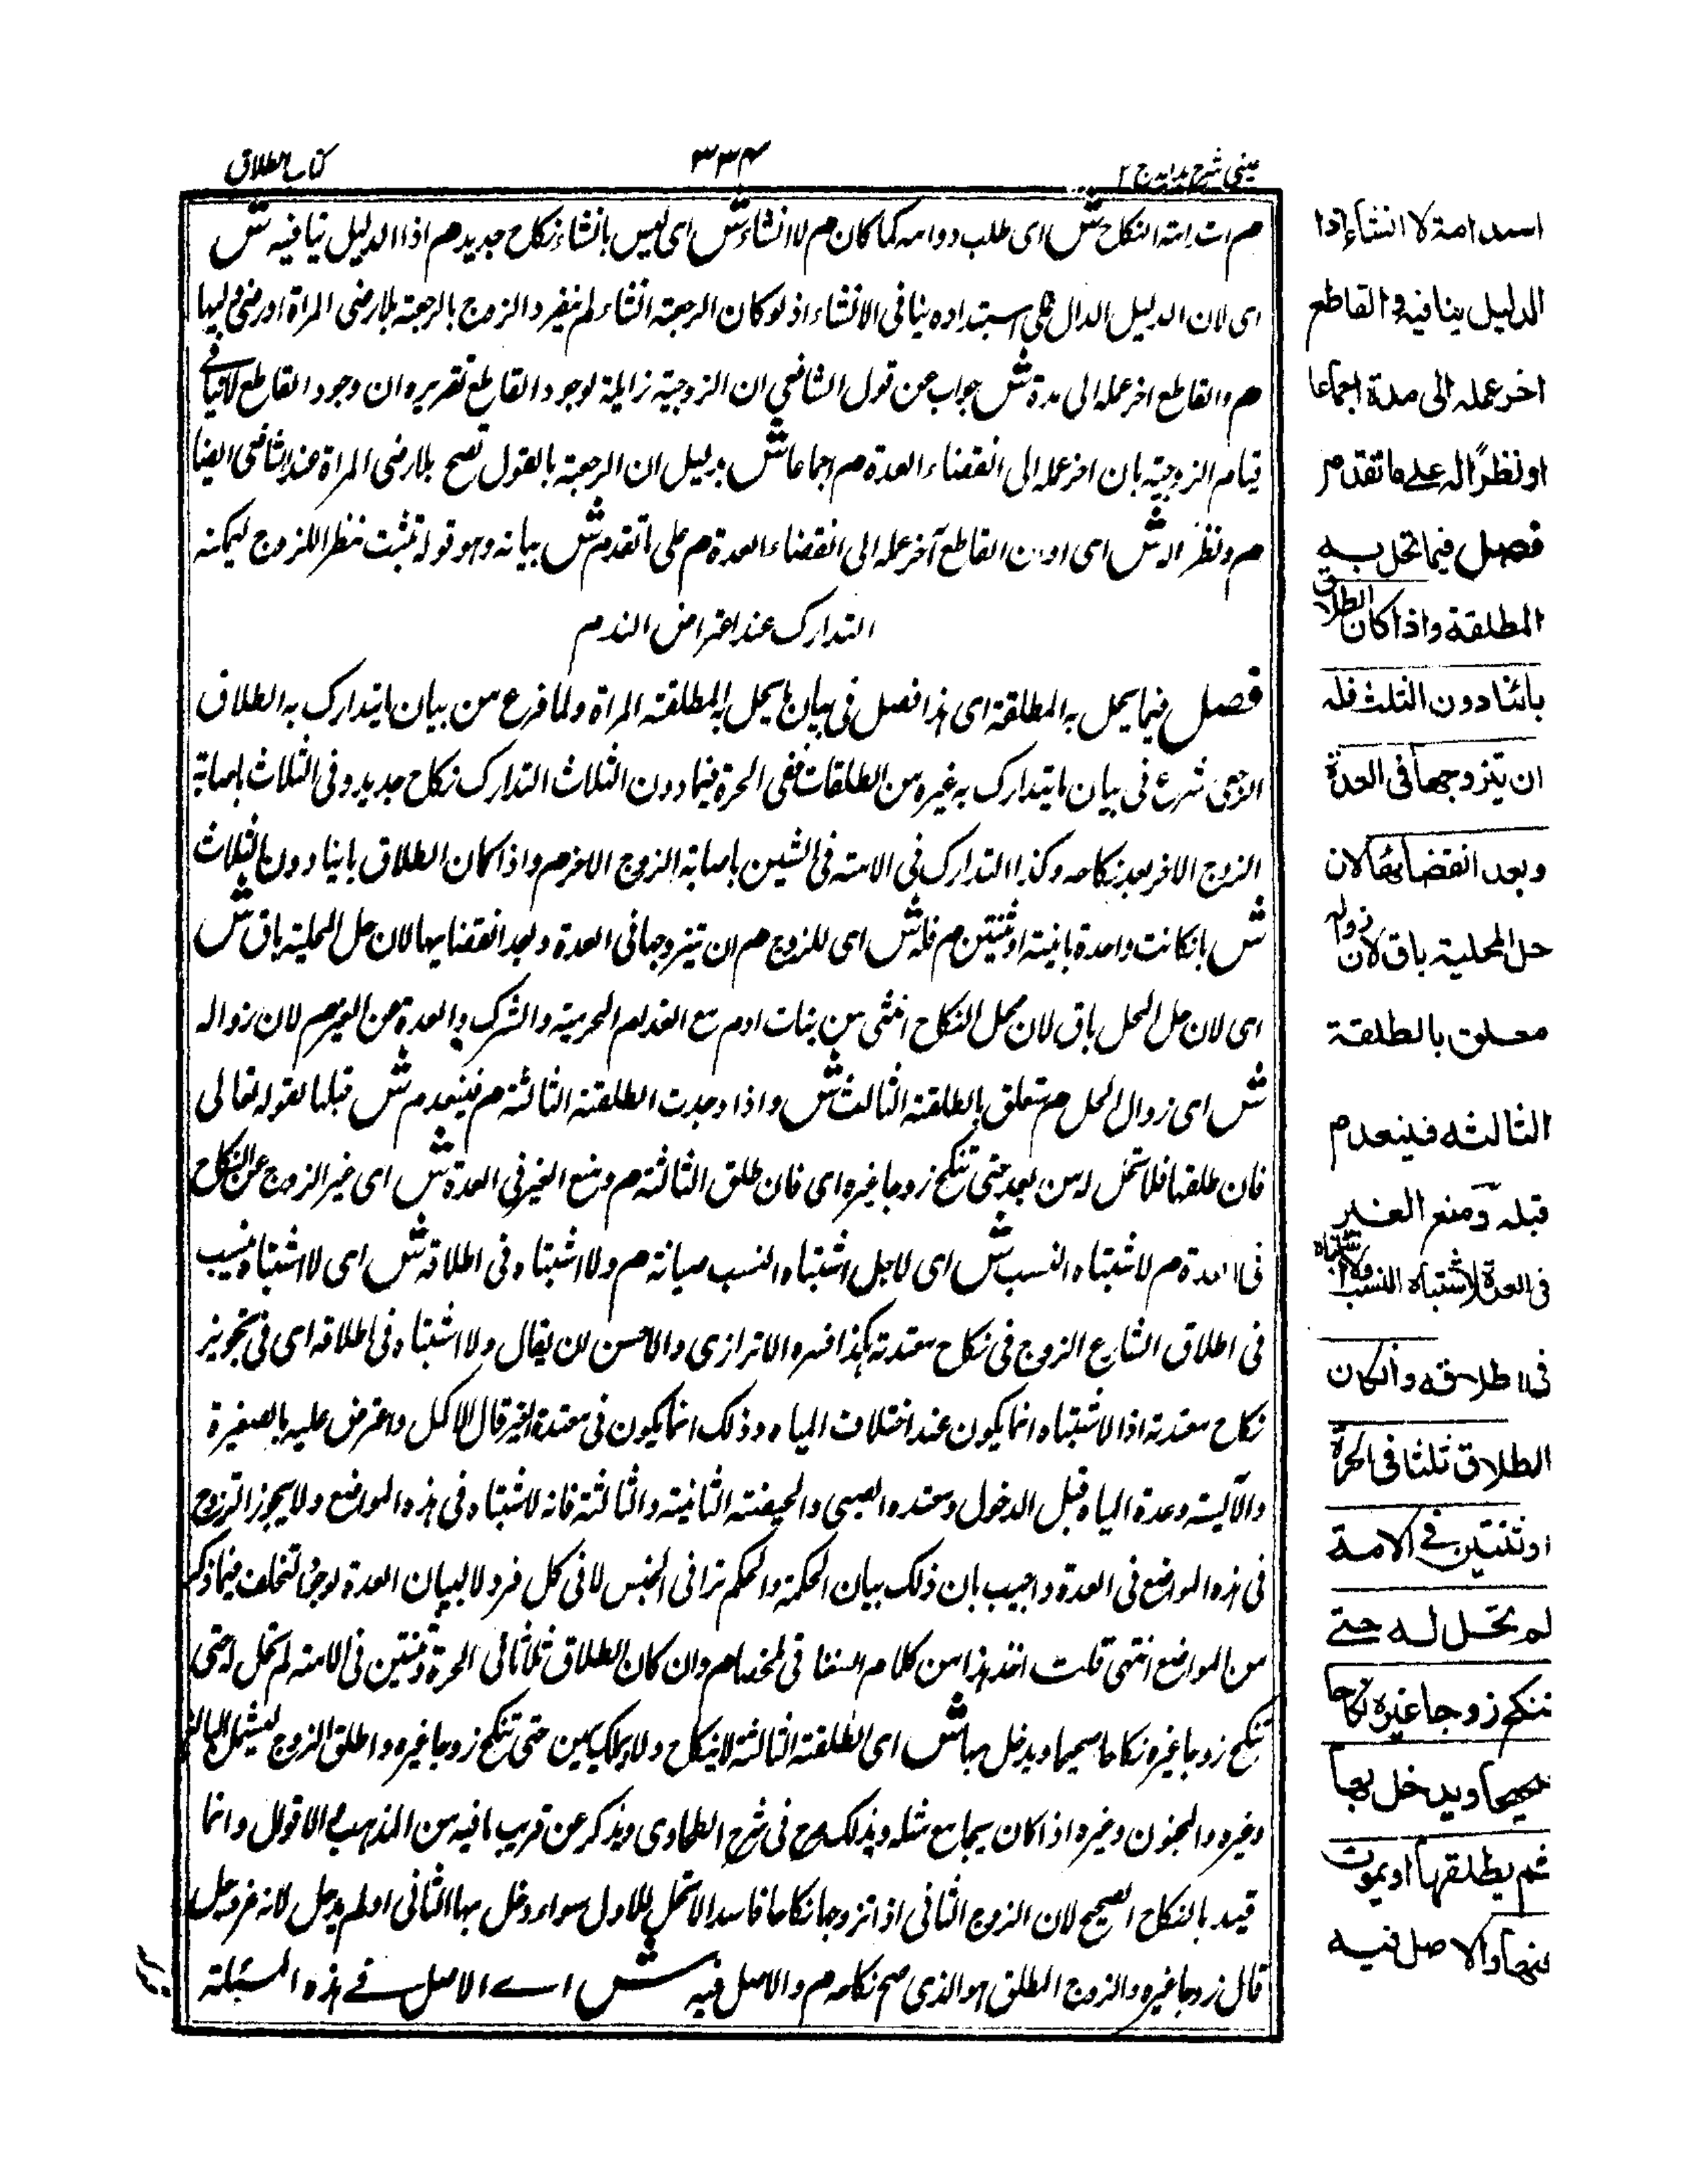 عینی شرح ہدایہ ج ٢
٣٣٤
کتاب الطلاق
م استدامة النکاح ش ای طلب دوامہ کما کان م لا انشاء ش ای لیس بانشاء نکاح جدید م اذ الدلیل ینافیہ ش
ای لان الدلیل الدال علی استبداده ینافی الانشاء اذ لو کان الرجعة انشاء لم ینفرد الزوج بالرجعة بلا رضی المراة او رضی ولیها
م والقاطع اخر عملہ الی مدة ش جواب عن قول الشافعی ان الزوجیة زایلة لوجود القاطع تقریره ان وجود القاطع لا ینافی
قیام الزوجیة بان اخر عملہ الی انقضاء العدة م اجماعا ش بدلیل ان الرجعة بالقول تصح بلا رضی المراة عند الشافعی ایضا
م ونظرا لہ ش ای او ان القاطع آخر عملہ الی انقضاء العدة م علی ما تقدم ش بیانہ وهو قولہ تثبت نظرا للزوج لیمکنہ
التدارک عند اعتراض الندم
فصل فیما یحل بہ المطلقة ای هذا فصل فی بیان ما یحل بہ المطلقة المراة ولما فرغ من بیان ما یتدارک بہ الطلاق
الرجعی شرع فی بیان ما یتدارک بہ غیره من الطلقات ففی الحرة فیما دون الثلاث التدارک نکاح جدید وفی الثلاث باصابة
الزوج الاخر بعد نکاحہ وکذا التدارک فی الامة فی الثنتین باصابة الزوج الاخر م واذا کان الطلاق باینا دون الثلاث
ش بان کانت واحدة باینة او ثنتین م فلہ ش ای للزوج م ان یتزوجها فی العدة وبعد انقضایها لان حل المحلیة باق ش
ای لان حل المحل باق لان محل النکاح انثی من بنات ادم مع انعدام المحرمیة والشرک والعدة عن الغیر م لان زوالہ
ش ای زوال الحل م متعلق بالطلقة الثالث ش واذا وجدت الطلقة الثالثة م فینعدم ش قبلها لقولہ تعالی
فان طلقها فلا تحل لہ من بعد حتی تنکح زوجا غیره ای فان طلق الثالثة م ومنع الغیر فی العدة ش ای غیر الزوج عن النکاح
فی العدة م لاشتباه النسب ش ای لاجل اشتباه النسب صیانة م ولا اشتباه فی اطلاقہ ش ای لا اشتباه نسب
فی اطلاق الشارع الزوج فی نکاح معتدتہ هکذا فسره الاترازی والاحسن ان یقال ولا اشتباه فی اطلاقہ ای فی تجویز
نکاح معتدتہ اذ الاشتباه انما یکون عند اختلاف المیاه وذلک انما یکون فی معتدة الغیر قال الاکمل واعترض علیہ بالصغیرة
والآیسة وعدة المیاه قبل الدخول ومعتده الصبی والحیضة الثانیة والثالثة فانہ لا اشتباه فی هذه المواضع ولا یجوز التزوج
فی هذه المواضع فی العدة واجیب بان ذلک بیان الحکمة والحکم تراعی الجنس لا فی کل فرد لا لبیان العدة لتخلف فیما ذکر
من المواضع انتهی قلت اخذ هذا من کلام السغناقی ملخصا م وان کان الطلاق ثلاثا فی الحرة وثنتین فی الامة لم تحل لہ حتی
تنکح زوجا غیره نکاحا صحیحا ویدخل بها ش ای الطلقة الثالثة لا بنکاح ولا بملک یمین حتی تنکح زوجا غیره واطلق الزوج لیشمل البالغ
وغیره والمجنون وغیره اذا کان یجامع مثلہ وبذلک صرح فی شرح الطحاوی ویذکر عن قریب ما فیہ من المذهب والاقوال وانما
قید بالنکاح الصحیح لان الزوج الثانی اذا تزوجها نکاحا فاسدا لا تحل للاول سواء دخل بها الثانی او لم یدخل لانہ عز وجل
قال زوجا غیره والزوج المطلق هو الذی صح نکاحہ م والاصل فیہ ش اے الاصل فے هذه المسئلة
استدامة لا انشاء اذا
الدلیل ینافیہ والقاطع
اخر عملہ الی مدة اجماعا
او نظرًا لہ علے ما تقدم
فصل فیما تحل بہ
المطلقة واذا کان الطلاق
بائنا دون الثلث فلہ
ان یتزوجها فی العدة
وبعد انقضائها لان
حل المحلیة باق لان زوالہ
معلق بالطلقة
الثالثہ فینعدم
قبلہ ومنع الغیر
فی العدة لاشتباه النسب ولا اشتباه
فی اطلاقہ وان کان
الطلاق ثلثا فی الحرة
او ثنتین فے الامة
لم تحل لہ حتے
تنکح زوجا غیره نکاحا
صحیحا ویدخل بها
ثم یطلقها او یموت
عنها والاصل فیہ